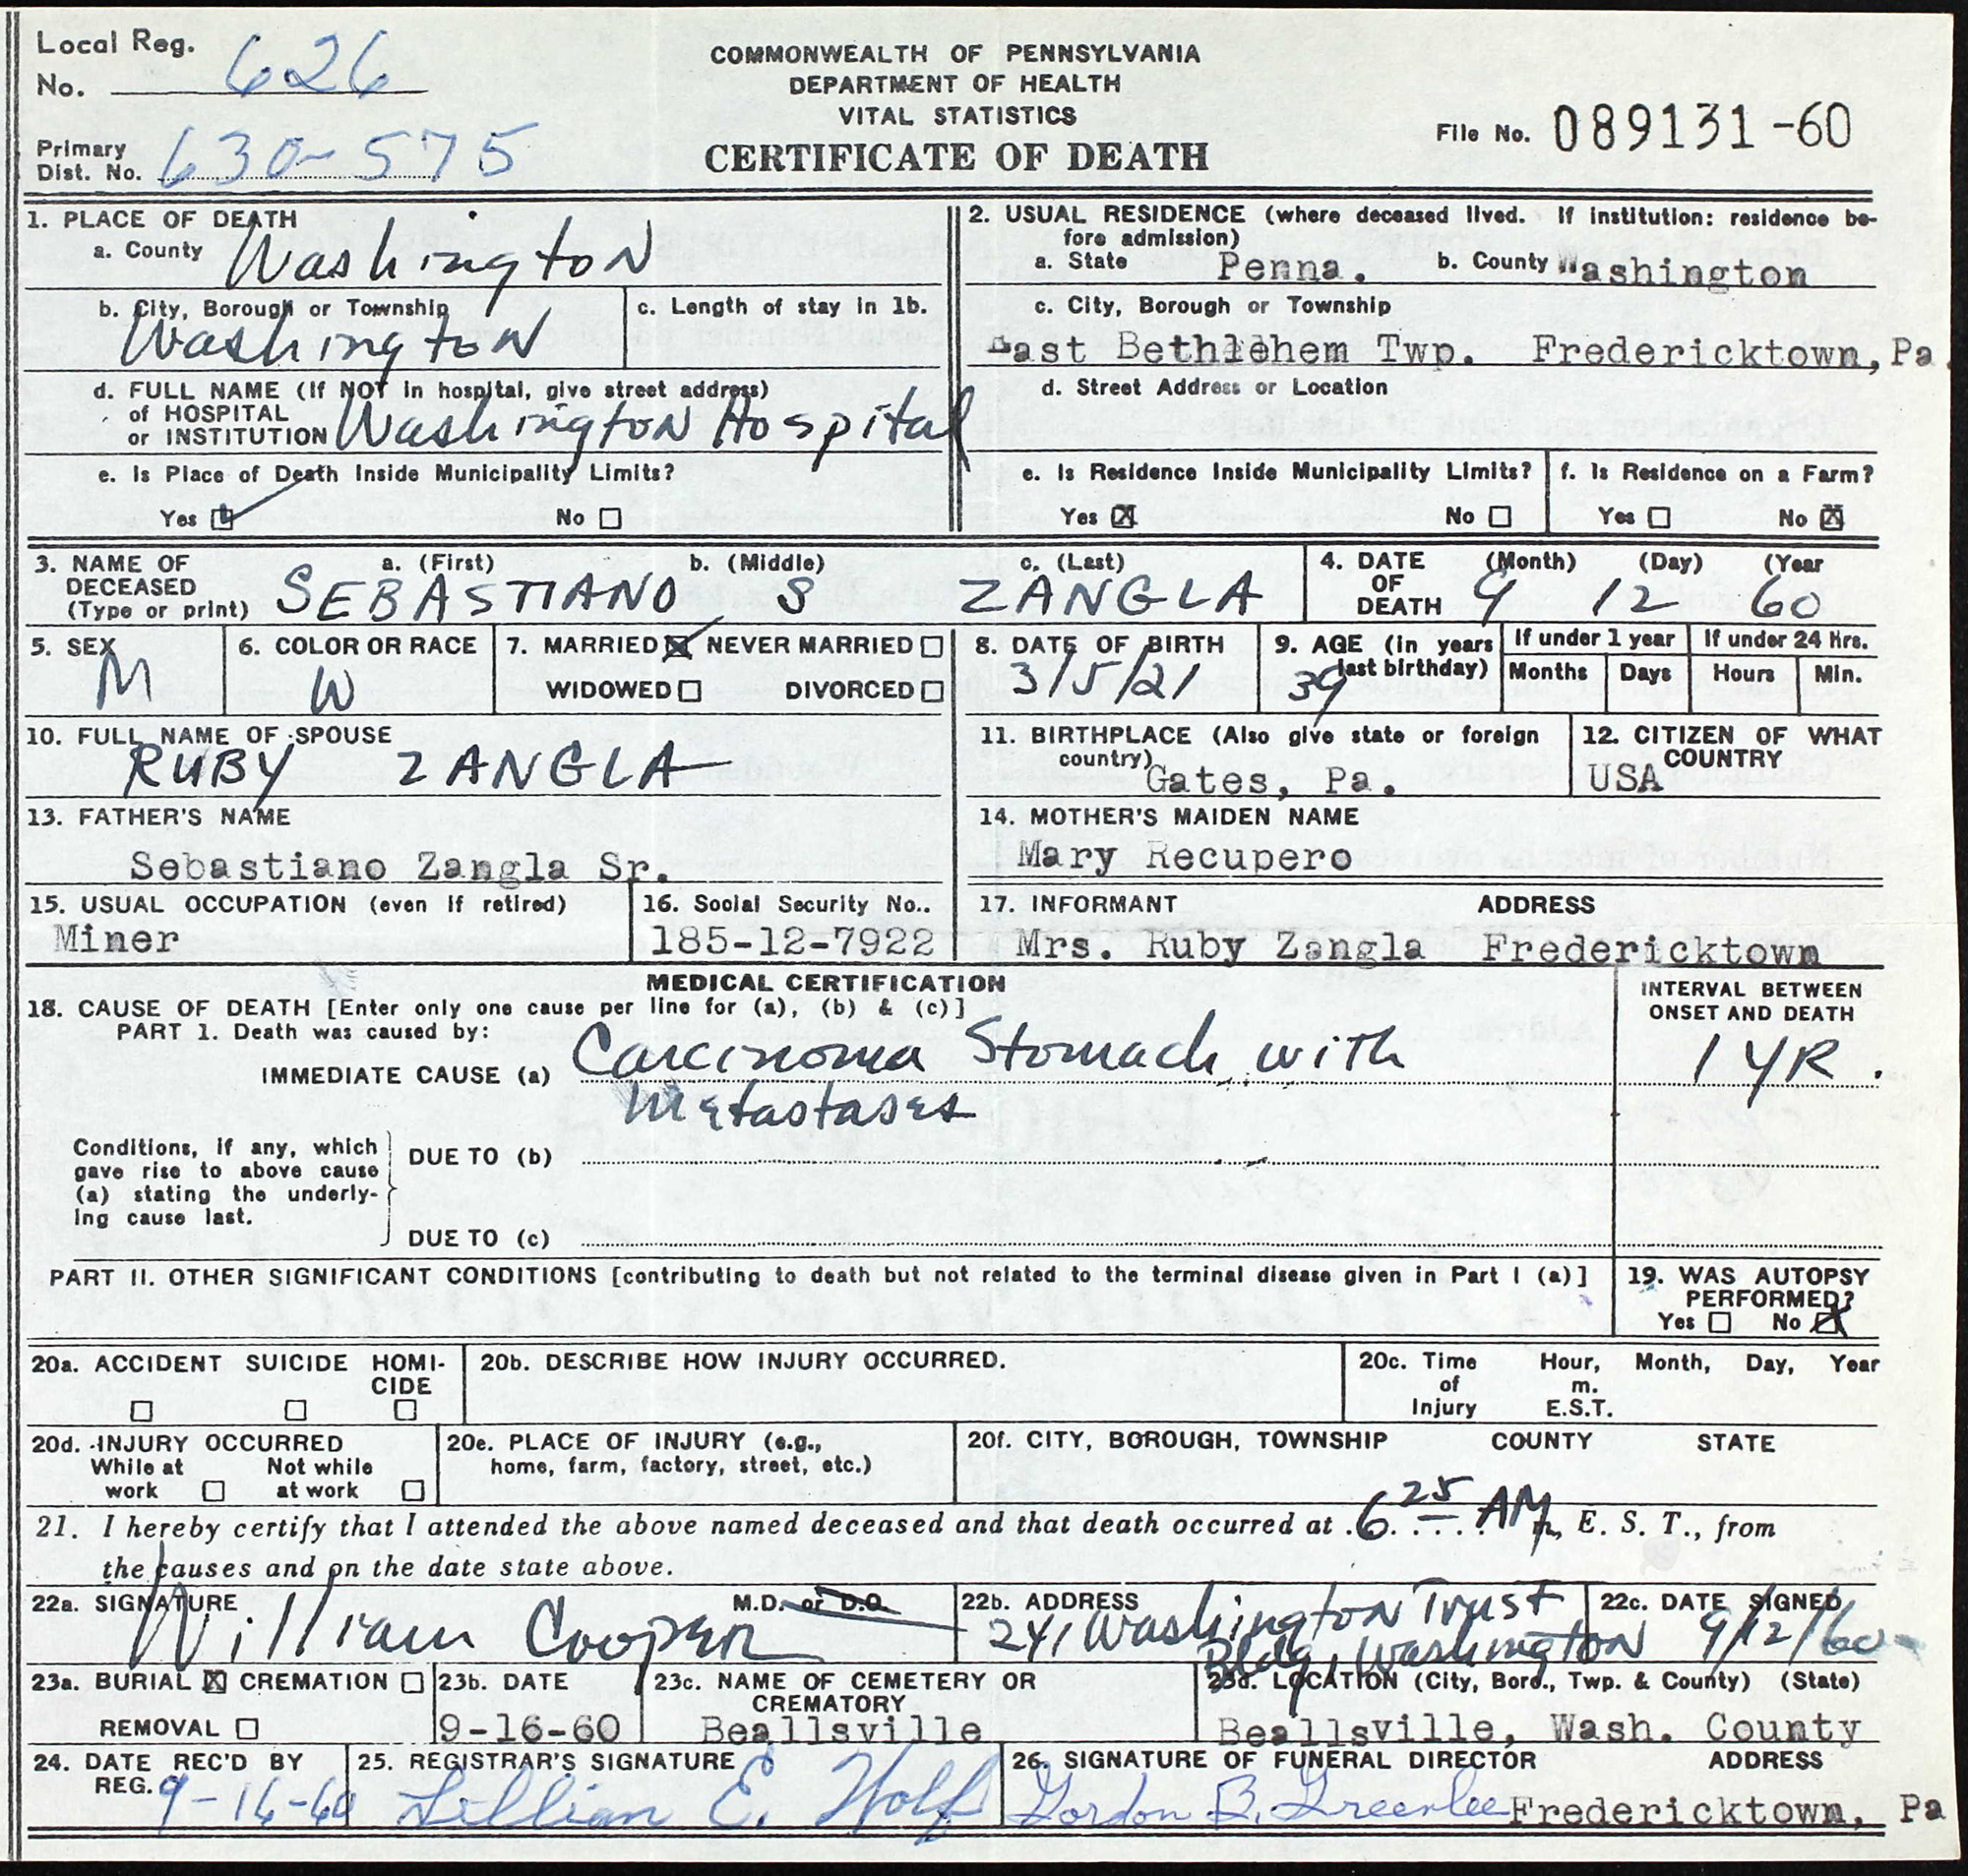 Local Reg.
No. 626
COMMONWEALTH OF PENNSYLVANIA
DEPARTMENT OF HEALTH
VITAL STATISTICS
CERTIFICATE OF DEATH
File No. 089131-60
Primary
Dist. No. 630-575
1. PLACE OF DEATH
a. County Washington
b. City, Borough or Township
Washington
c. Length of stay in 1b.
d. FULL NAME (If NOT in hospital, give street address)
of HOSPITAL
or INSTITUTION Washington Hospital
e. Is Place of Death Inside Municipality Limits?
Yes No
2. USUAL RESIDENCE (where deceased lived. If institution: residence be-
fore admission)
a. State Penna. b. County Washington
c. City, Borough or Township
East Bethlehem Twp. Fredericktown, Pa.
d. Street Address or Location
e. Is Residence Inside Municipality Limits?
Yes X No
f. Is Residence on a Farm?
Yes No X
3. NAME OF DECEASED
(Type or print)
a. (First) b. (Middle) c. (Last)
SEBASTIANO S ZANGLA
4. DATE OF DEATH
(Month) (Day) (Year
9 12 60
5. SEX
M
6. COLOR OR RACE
W
7. MARRIED X NEVER MARRIED
WIDOWED DIVORCED
8. DATE OF BIRTH
3/5/21
9. AGE (in years
last birthday)
39
If under 1 year
Months Days
If under 24 Hrs.
Hours Min.
10. FULL NAME OF SPOUSE
RUBY ZANGLA
11. BIRTHPLACE (Also give state or foreign
country)
Gates, Pa.
12. CITIZEN OF WHAT
COUNTRY
USA
13. FATHER'S NAME
Sebastiano Zangla Sr.
14. MOTHER'S MAIDEN NAME
Mary Recupero
15. USUAL OCCUPATION (even if retired)
Miner
16. Social Security No..
185-12-7922
17. INFORMANT ADDRESS
Mrs. Ruby Zangla Fredericktown
MEDICAL CERTIFICATION
18. CAUSE OF DEATH [Enter only one cause per line for (a), (b) & (c)]
PART 1. Death was caused by:
IMMEDIATE CAUSE (a) Carcinoma Stomach with
metastases
INTERVAL BETWEEN
ONSET AND DEATH
1 YR.
Conditions, if any, which
gave rise to above cause
(a) stating the underly-
ing cause last.
DUE TO (b)
DUE TO (c)
PART II. OTHER SIGNIFICANT CONDITIONS [contributing to death but not related to the terminal disease given in Part I (a)]
19. WAS AUTOPSY
PERFORMED?
Yes No X
20a. ACCIDENT SUICIDE HOMI-
CIDE
20b. DESCRIBE HOW INJURY OCCURRED.
20c. Time Hour, Month, Day, Year
of m.
Injury E.S.T.
20d. INJURY OCCURRED
While at Not while
work at work
20e. PLACE OF INJURY (e.g.,
home, farm, factory, street, etc.)
20f. CITY, BOROUGH, TOWNSHIP COUNTY STATE
21. I hereby certify that I attended the above named deceased and that death occurred at 6 25 AM m, E. S. T., from
the causes and on the date state above.
22a. SIGNATURE M.D. or D.O.
William Cooper
22b. ADDRESS
241 Washington Trust
Bldg, Washington
22c. DATE SIGNED
9/12/60
23a. BURIAL X CREMATION
REMOVAL
23b. DATE
9-16-60
23c. NAME OF CEMETERY OR
CREMATORY
Beallsville
23d. LOCATION (City, Boro., Twp. & County) (State)
Beallsville, Wash. County
24. DATE REC'D BY
REG. 9-16-60
25. REGISTRAR'S SIGNATURE
Lillian E. Wolf
26. SIGNATURE OF FUNERAL DIRECTOR ADDRESS
Gordon B. Greenlee Fredericktown, Pa